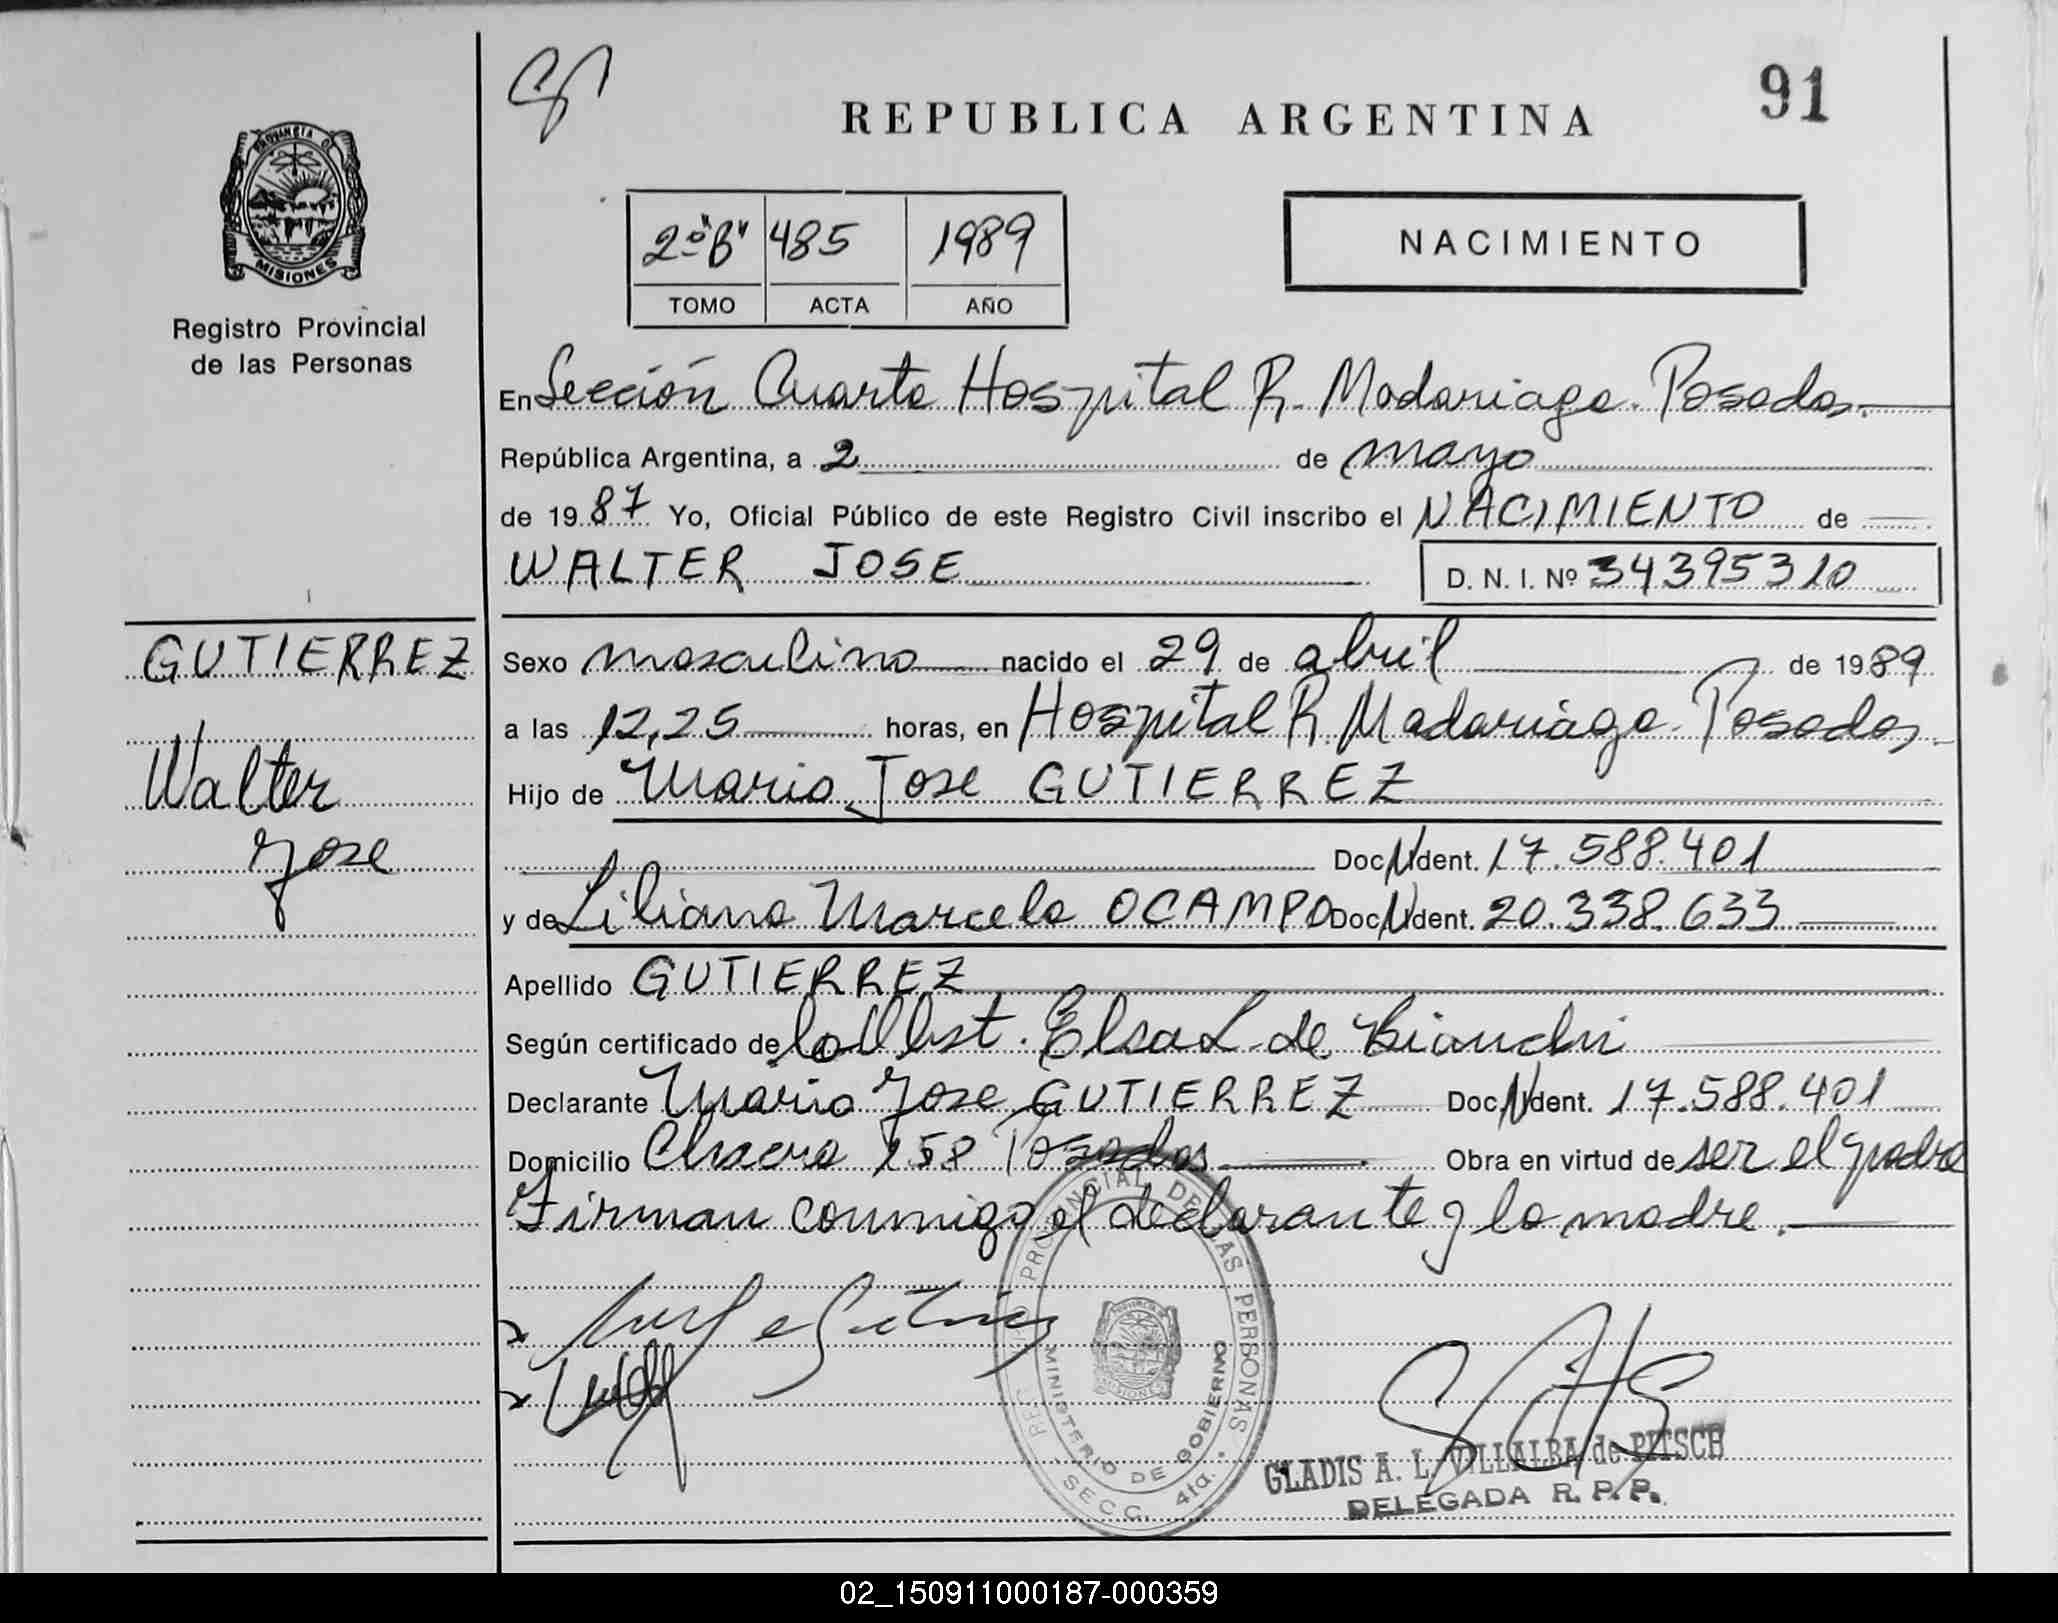 91
REPUBLICA ARGENTINA
PROVINCIA DE
MISIONES
Registro Provincial
de las Personas
2º "B" 485 1989
TOMO ACTA AÑO
NACIMIENTO
En Sección Cuarta Hospital R. Madariaga. Posadas.
República Argentina, a 2 de mayo
de 1987 Yo, Oficial Público de este Registro Civil inscribo el NACIMIENTO de
WALTER JOSE D. N. I. Nº 34395310
GUTIERREZ
Walter
Jose
Sexo masculino nacido el 29 de abril de 1989
a las 12,25 horas, en Hospital R. Madariaga. Posadas.
Hijo de Mario Jose GUTIERREZ
Doc. N. Ident. 17.588.401
y de Liliana Marcela OCAMPO Doc. N. Ident. 20.338.633
Apellido GUTIERREZ
Según certificado de la Obst. Elsa L. de Bianchi
Declarante Mario Jose GUTIERREZ Doc. N. Ident. 17.588.401
Domicilio Chacra 158 Posadas Obra en virtud de ser el padre
Firman conmigo el declarante y la madre.
PROVINCIAL DE LAS PERSONAS
MINISTERIO DE GOBIERNO
SECC. 4ta.
GLADIS A. L. VILLALBA de PITSCH
DELEGADA R. P. P.
02_150911000187-000359